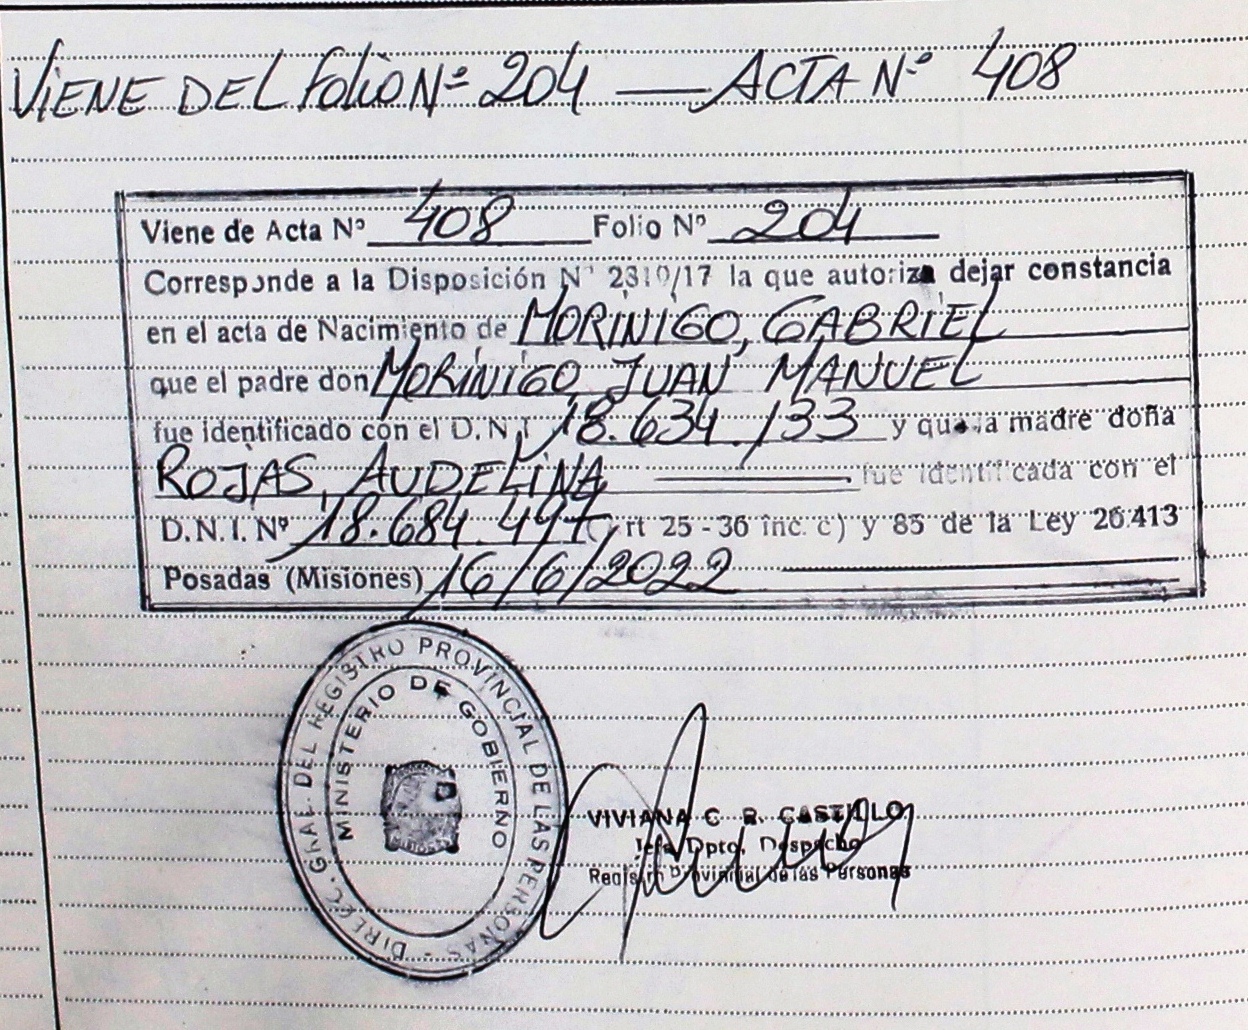 ViENE DEL foliO Nº 204 — ACTA Nº 408
Viene de Acta Nº 408 Folio Nº 204
Corresponde a la Disposición Nº 2310/17 la que autoriza dejar constancia
en el acta de Nacimiento de MORINIGO, GABRIEL
que el padre don MORINIGO, JUAN MANUEL
fue identificado con el D.N.I 18.634.133 y que la madre doña
ROJAS, AUDELINA fue identificada con el
D.N.I. Nº 18.684.497 (rt 25 - 36 inc. c) y 85 de la Ley 26.413
Posadas (Misiones) 16/6/2022
DIRECC. GRAL. DEL REGISTRO PROVINCIAL DE LAS PERSONAS -
MINISTERIO DE GOBIERNO
VIVIANA C. R. CASTILLO
Jefa Dpto. Despacho
Registro Provincial de las Personas